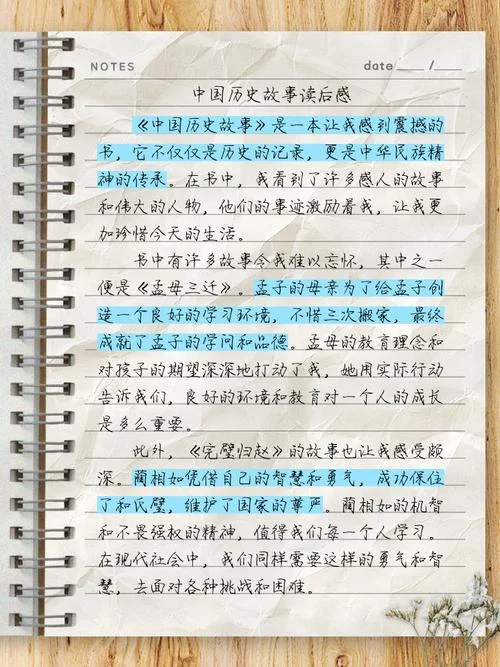 NOTES date ____ / ____
中国历史故事读后感
《中国历史故事》是一本让我感到震撼的
书，它不仅仅是历史的记录，更是中华民族精
神的传承。在书中，我看到了许多感人的故事
和伟大的人物，他们的事迹激励着我，让我更
加珍惜今天的生活。
书中有许多故事令我难以忘怀，其中之一
便是《孟母三迁》。孟子的母亲为了给孟子创
造一个良好的学习环境，不惜三次搬家，最终
成就了孟子的学问和品德。孟母的教育理念和
对孩子的期望深深地打动了我，她用实际行动
告诉我们，良好的环境和教育对一个人的成长
是多么重要。
此外，《完璧归赵》的故事也让我感受颇
深。蔺相如凭借自己的智慧和勇气，成功保住
了和氏璧，维护了国家的尊严。蔺相如的机智
和不畏强权的精神，值得我们每一个人学习。
在现代社会中，我们同样需要这样的勇气和智
慧，去面对各种挑战和困难。